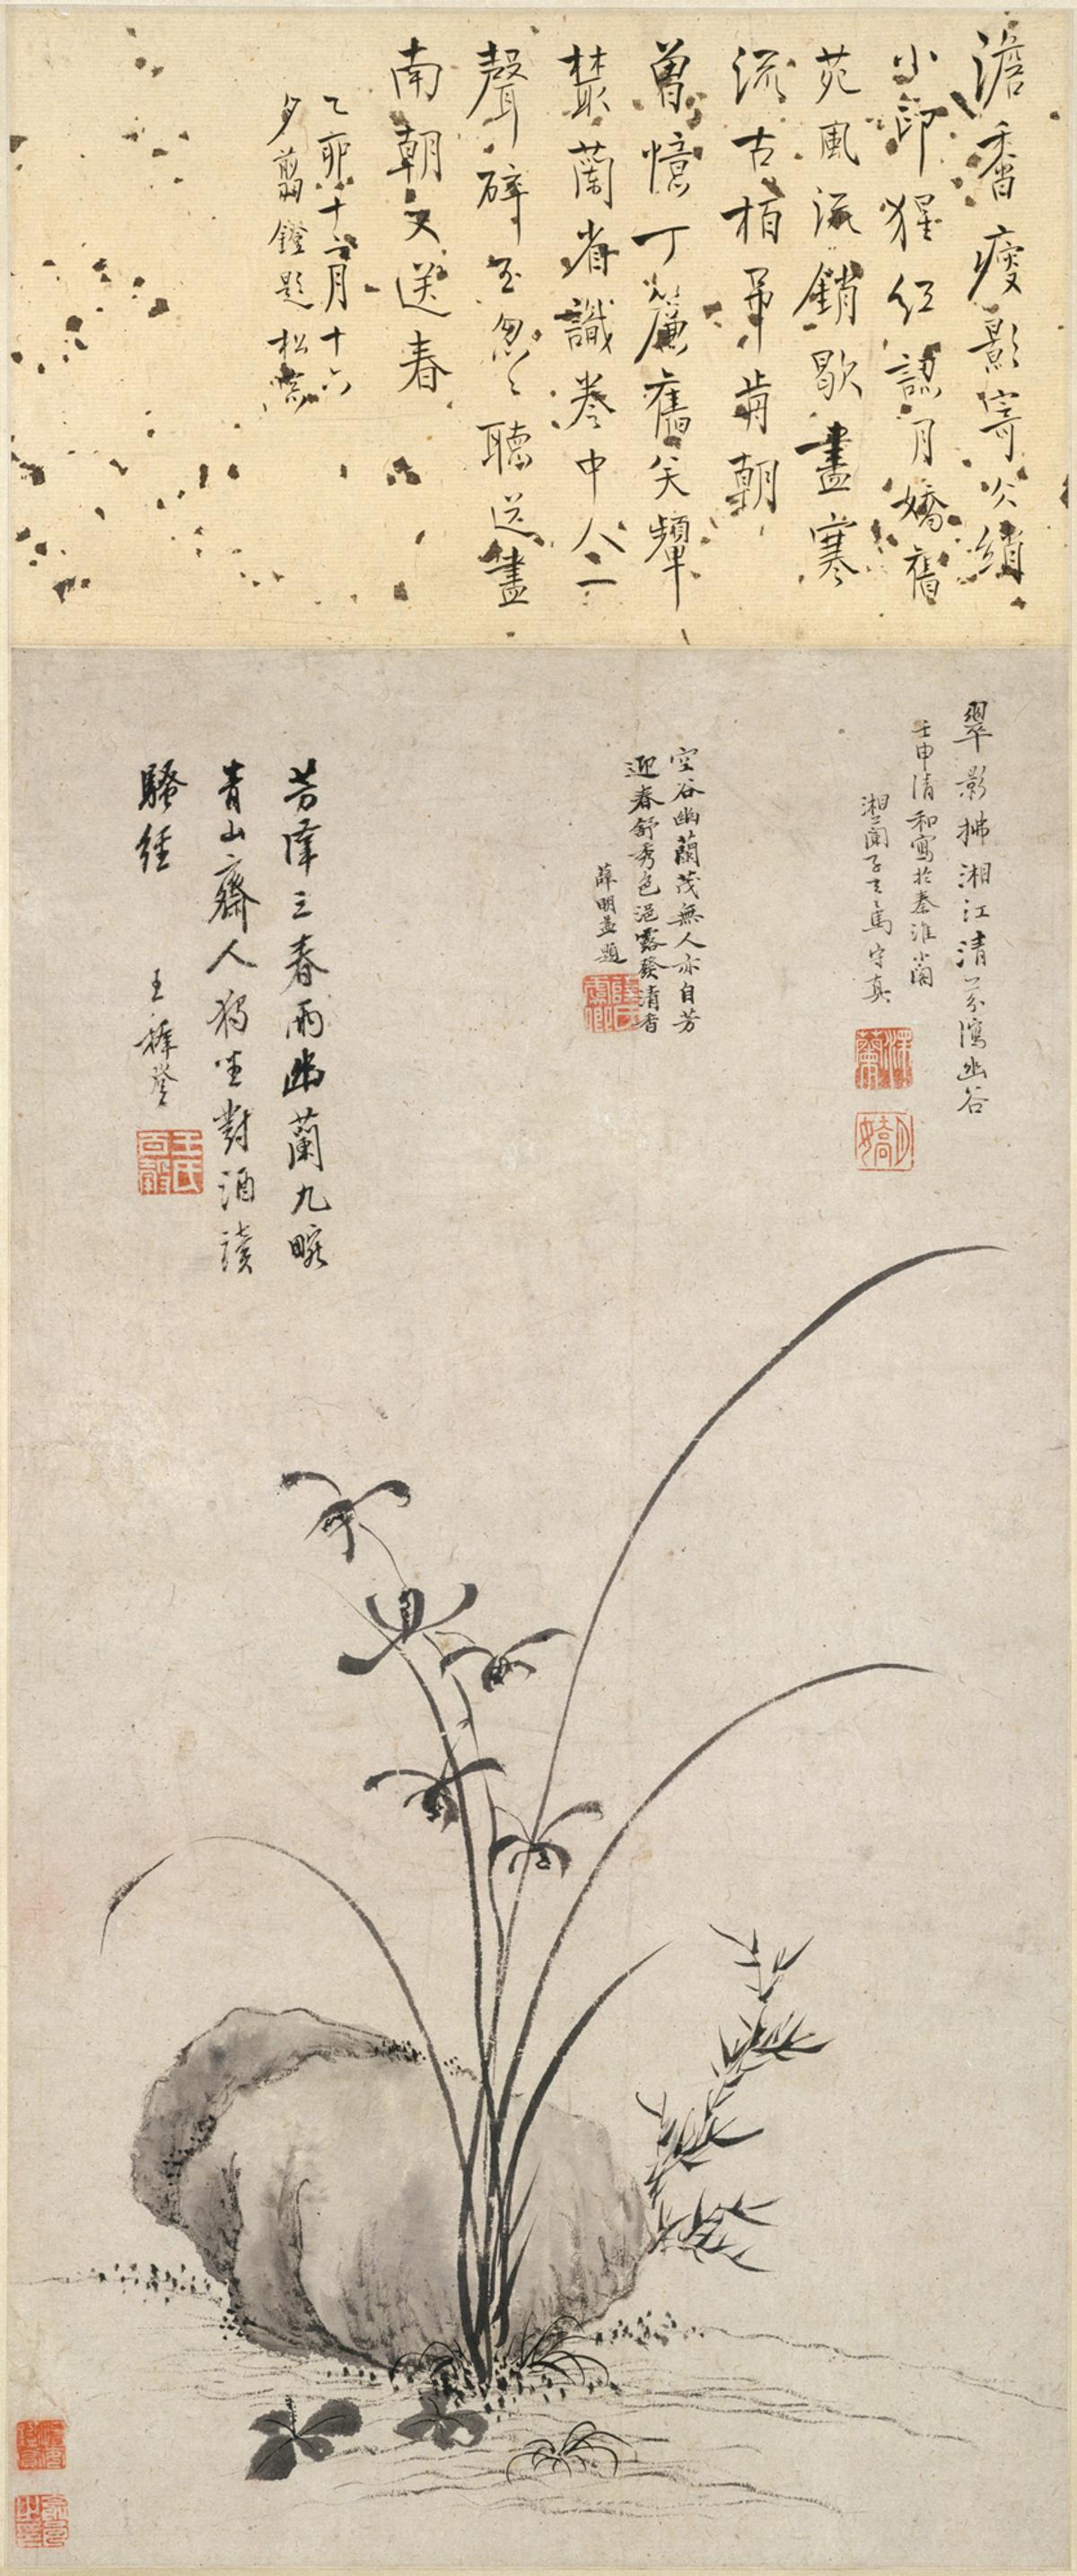 澹香瘦影寄冰綃
小印猩红認月嬌舊
苑風流銷歇盡寒
流古柏弔前朝
曾憶丁簾舊笑顰
叢蘭省識卷中人一
聲碎玉匆匆聽送盡
南朝又送春
乙卯十二月十六
夕翦鐙題 松窗
翠影拂湘江清芬瀉幽谷
壬申清和寫於秦淮小閣
湘蘭子 馬守真
空谷幽蘭茂無人亦自芳
迎春舒秀色浥露發清香
薛明益題
芳澤三春雨幽蘭九畹
青山齋人獨坐對酒讀
騷經
王穉登
王氏百穀